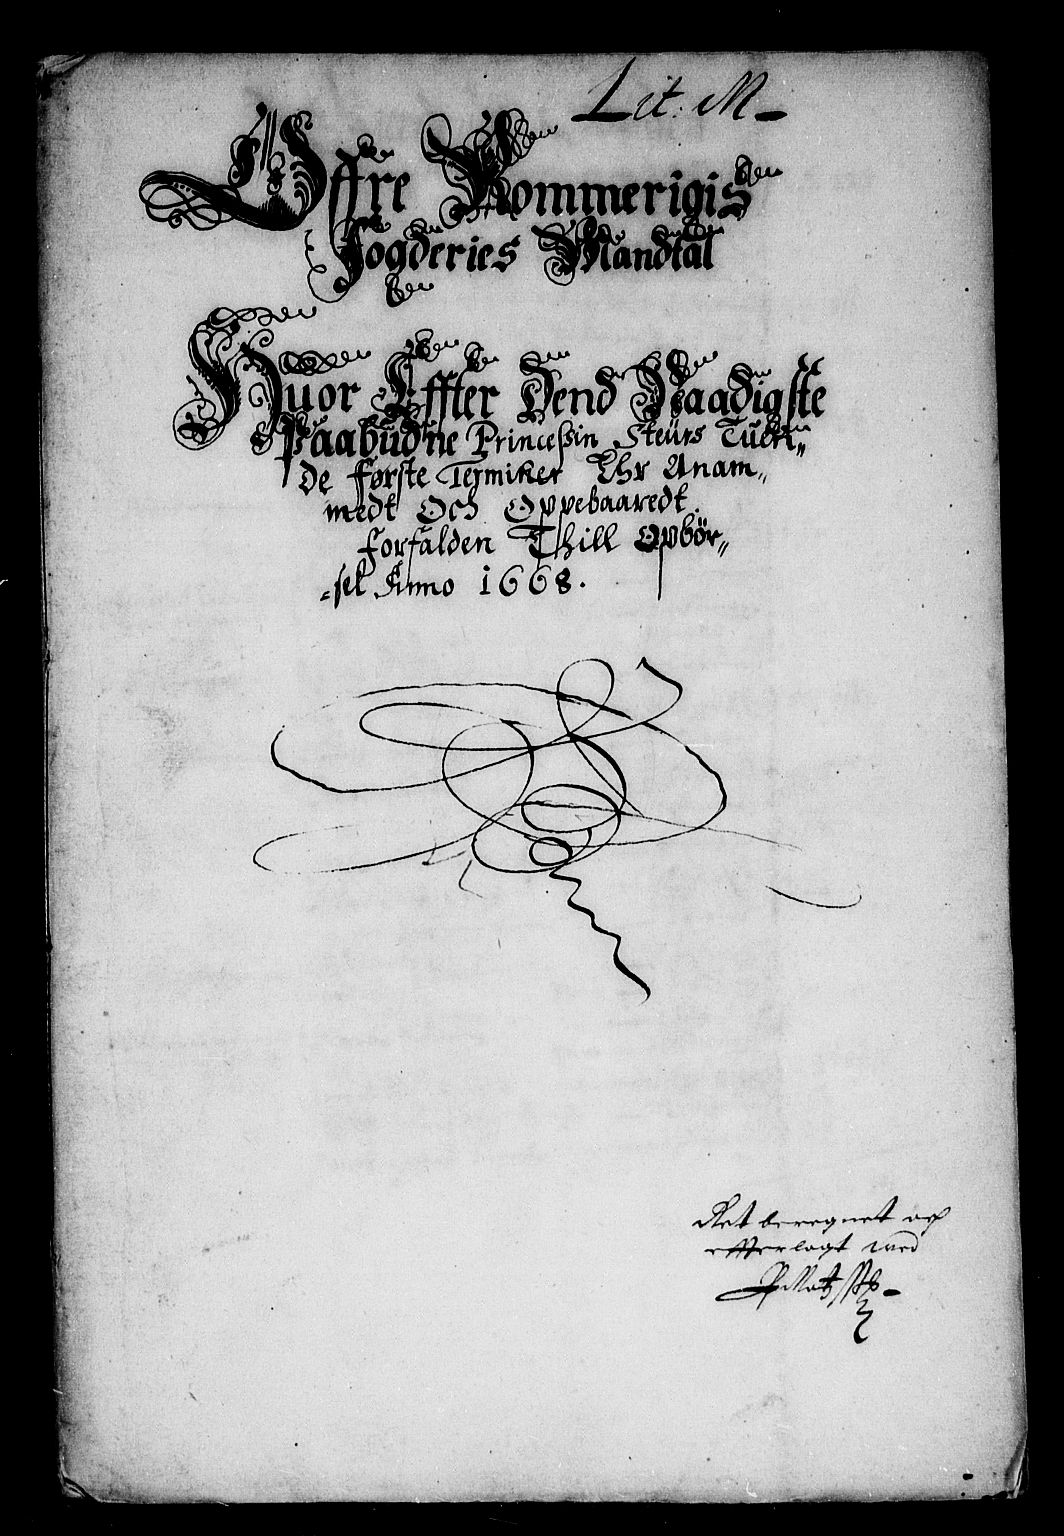 Lit: M
Øffre Rommerigis
Fogderies Mandtal
Huor Effter Dend Naadigste
Paabudne Princessin Steurs Tuen„
de første Terminer Ehr Anam„
medt Och Oppebaaredt
forfalden Thill Opbör„
„sel Anno 1668.
Ret beregnet och
efterlagt med